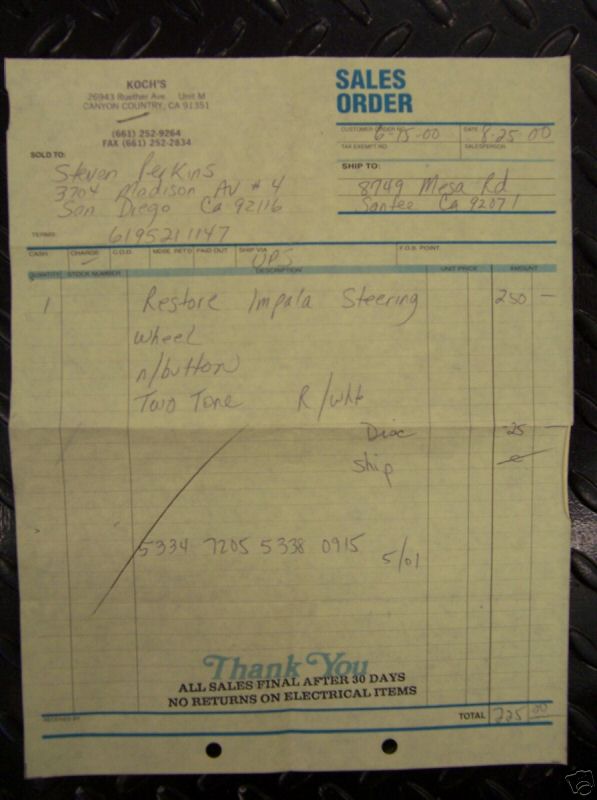 KOCH'S
26943 Ruether Ave. Unit M
CANYON COUNTRY, CA 91351
(661) 252-9264
FAX (661) 252-2834
SALES
ORDER
CUSTOMER ORDER NO. 6-15-00
DATE 8-25-00
TAX EXEMPT NO.
SALESPERSON
SOLD TO:
Steven Perkins
3704 Madison AV # 4
San Diego Ca 92116
SHIP TO:
8749 Mesa Rd
Santee Ca 92071
TERMS:
6195211147
CASH CHARGE C.O.D. MDSE. RET'D PAID OUT SHIP VIA UPS F.O.B. POINT
QUANTITY STOCK NUMBER DESCRIPTION UNIT PRICE AMOUNT
1 Restore Impala Steering 250 —
wheel
n/button
Two Tone R/wht
Disc -25 —
Ship
5334 7205 5338 0915 5/01
Thank You
ALL SALES FINAL AFTER 30 DAYS
NO RETURNS ON ELECTRICAL ITEMS
RECEIVED BY
TOTAL 225 00